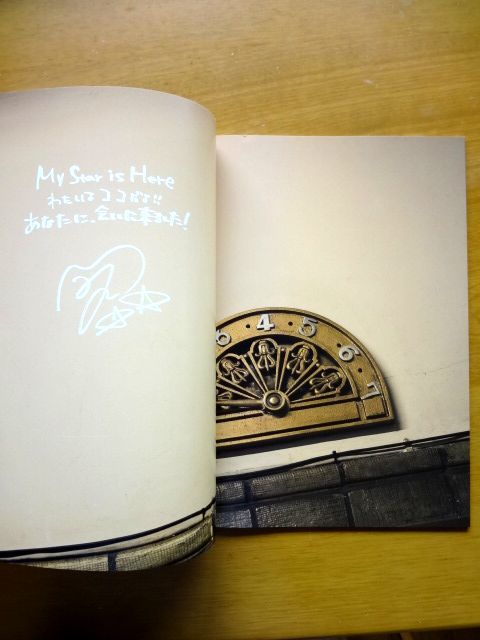 My Star is Here
ココだよ!!
あなたに、会いに来ました!
4 5 6 7